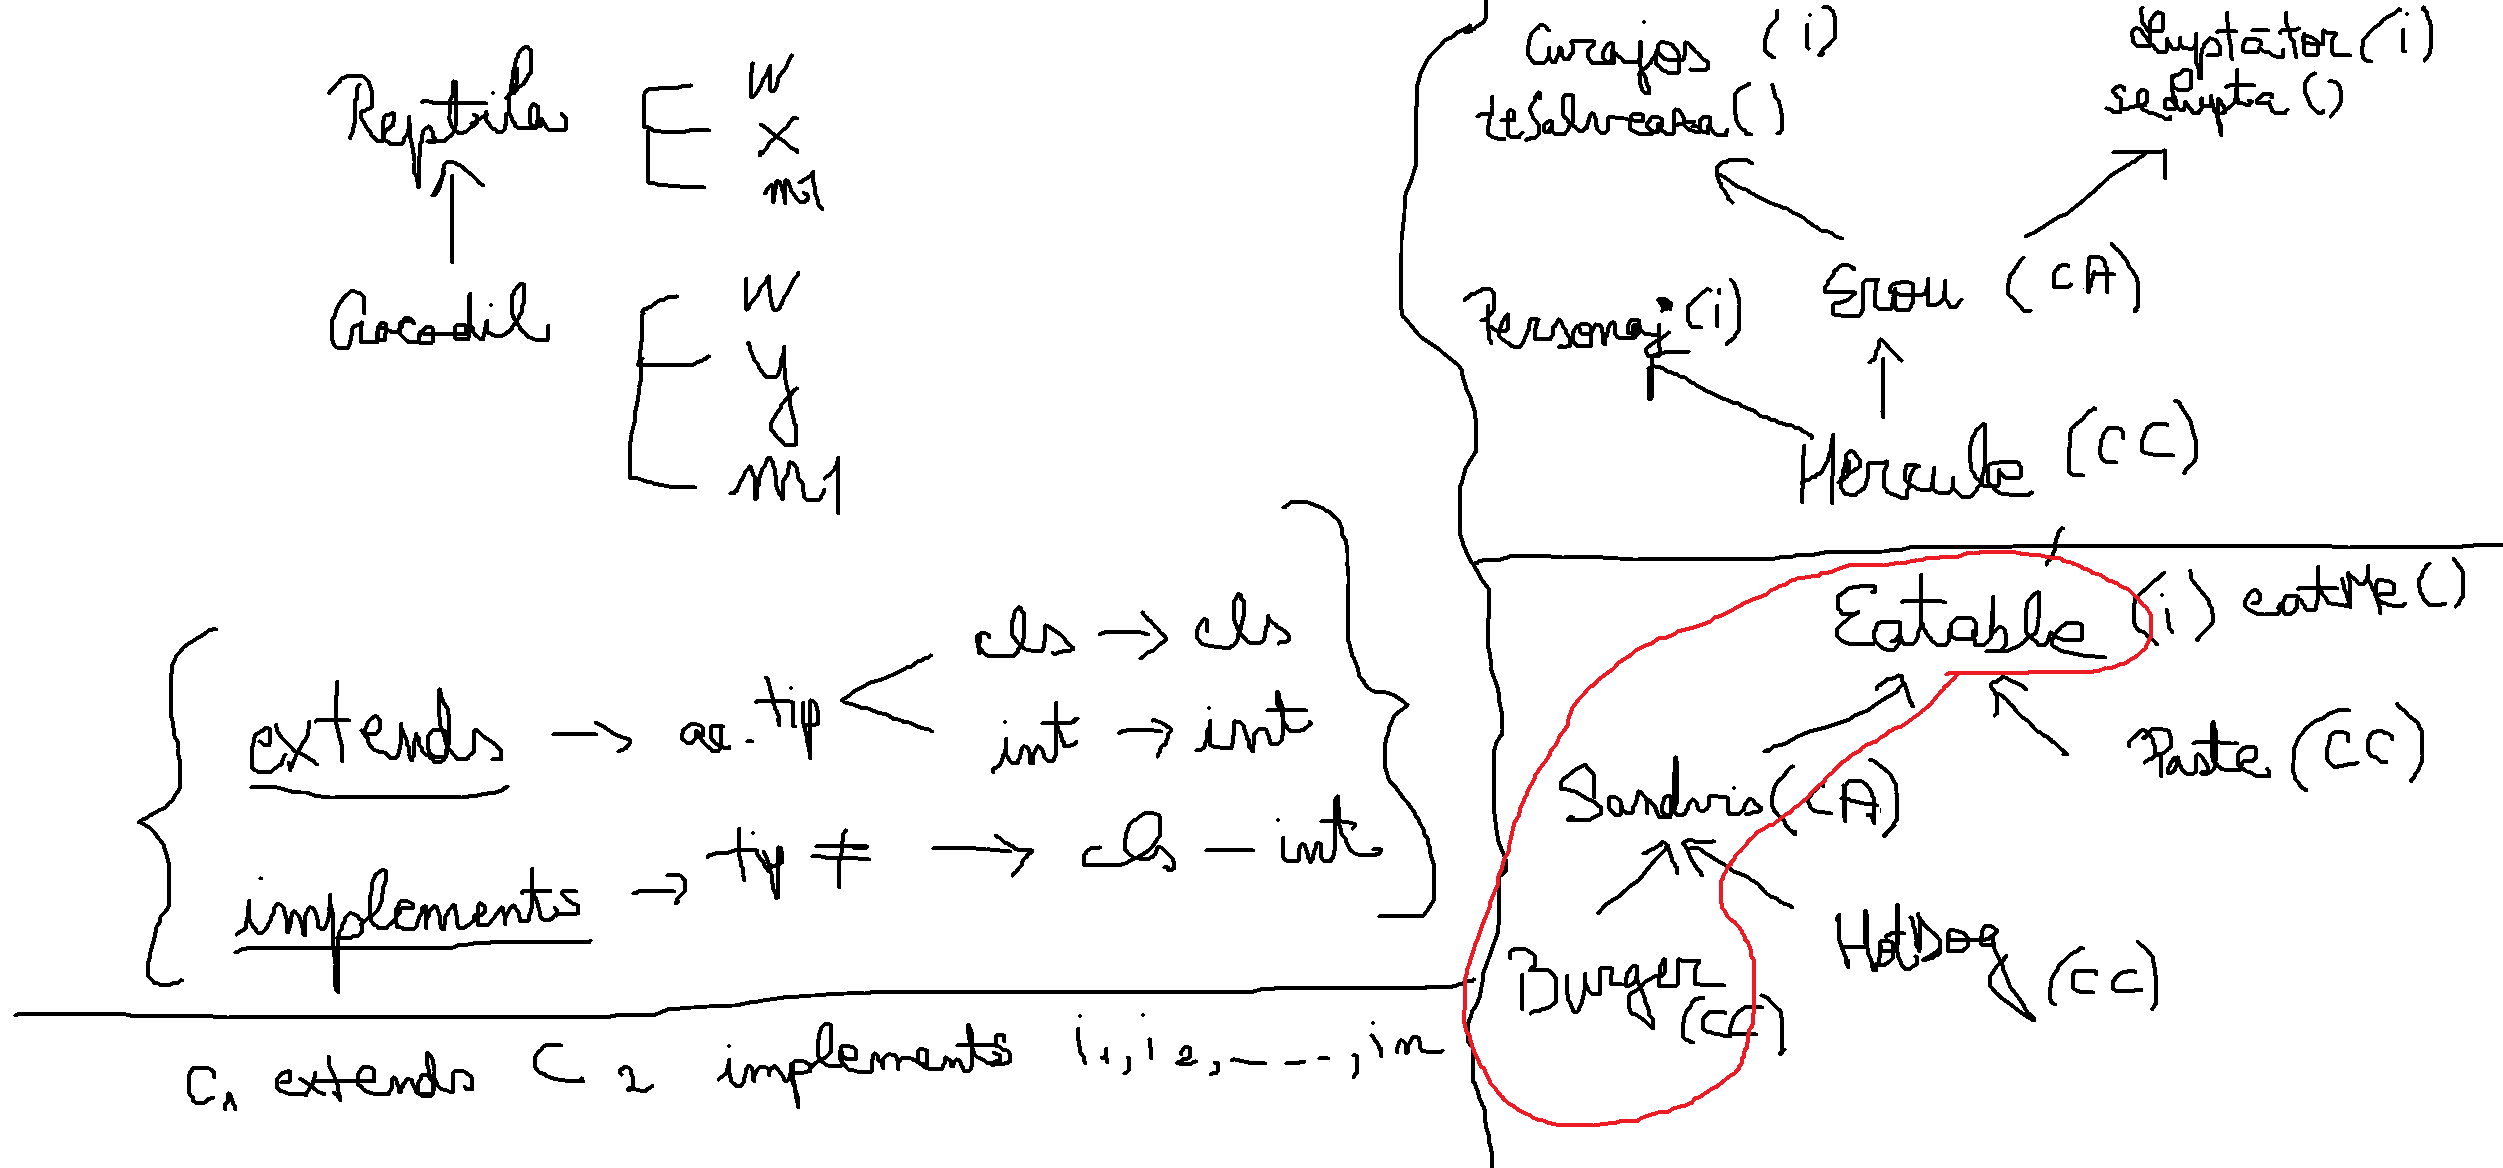 Reptila
W
x
m1
Crocodil
W
y
m1
extends → ac. tip
cls → cls
int → int
implements → tip ≠ → cls - int
C1 extends C2 implements i1, i2, ----, in
Curajos (i)
teSalveaza()
Luptător (i)
seLupta()
Personaj (i)
Erou (CA)
Hercule (CC)
Eatable (i) eatMe()
Sandvis (CA)
Paste (CC)
Burger (CC)
HotDog (CC)